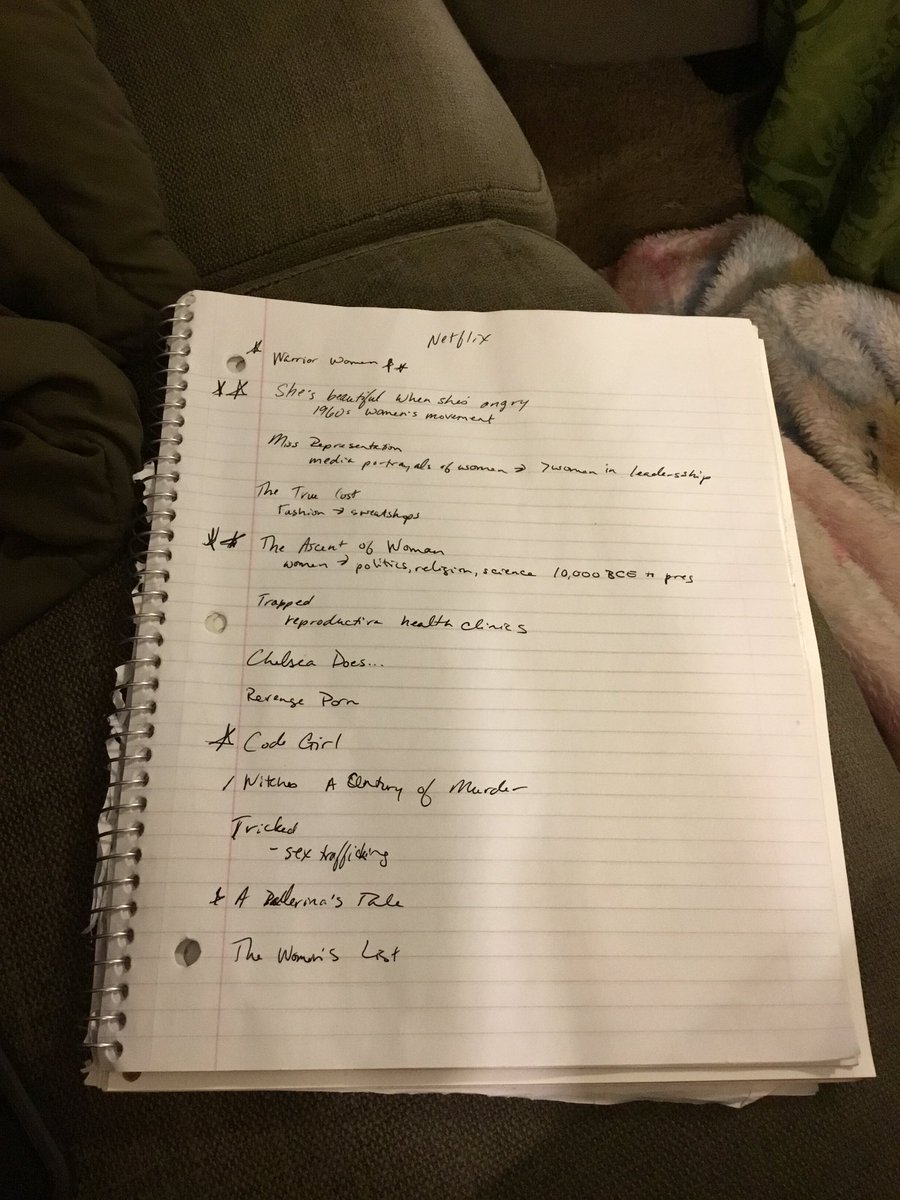 Netflix
Warrior Women
She's beautiful when she's angry
1960s women's movement
Miss Representation
media portrayals of women → 7women in leadersship
The True Cost
Fashion → sweatshops
The Ascent of Woman
women → politics, religion, science 10,000 BCE → pres
Trapped
reproductive health clinics
Chelsea Does...
Revenge Porn
Code Girl
Witches A Century of Murder
Tricked
- sex trafficking
A Ballerina's Tale
The Women's List